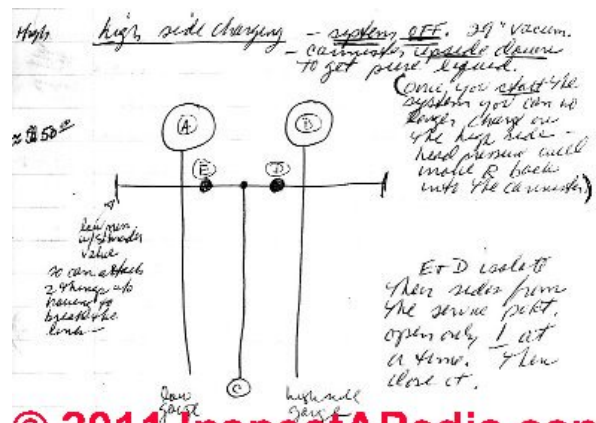 High
high side charging - system OFF. 29" vacuum.
- cannister upside down
to get pure liquid.
(once you start the
system you can no
longer charge on
the high side -
head pressure will
move R back
into the cannister)
≈ $50.00
A
B
E
D
valve
so can attach
2 things w/o
having to
break the
lines -
E + D isolate
their sides from
the service port.
open only 1 at
a time. Then
close it.
C
low
gauge
high side
gauge
© 2011 InspectAPedia.com